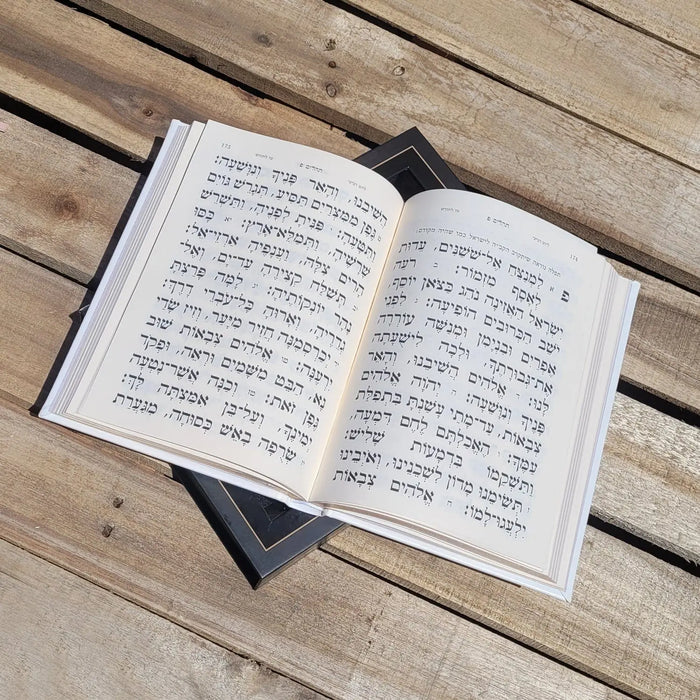 174
תהלים פ
תפלה נוראה הקב״ה לישראל כמו שהיה מקודם:
פ א לַמְנַצֵּחַ אֶל־שֹׁשַׁנִּים, עֵדוּת
לְאָסָף מִזְמוֹר: ב רֹעֵה
יִשְׂרָאֵל הַאֲזִינָה נֹהֵג כַּצֹּאן יוֹסֵף,
יֹשֵׁב הַכְּרוּבִים הוֹפִיעָה: ג לִפְנֵי
אֶפְרַיִם וּבִנְיָמִן וּמְנַשֶּׁה עוֹרְרָה
אֶת־גְּבוּרָתֶךָ, וּלְכָה לִישֻׁעָתָה
לָּנוּ: ד אֱלֹהִים הֲשִׁיבֵנוּ, וְהָאֵר
פָּנֶיךָ וְנִוָּשֵׁעָה: ה יְהוָה אֱלֹהִים
צְבָאוֹת, עַד־מָתַי עָשַׁנְתָּ בִּתְפִלַּת
עַמֶּךָ: ו הֶאֱכַלְתָּם לֶחֶם דִּמְעָה,
וַתַּשְׁקֵמוֹ בִּדְמָעוֹת שָׁלִישׁ:
ז תְּשִׂימֵנוּ מָדוֹן לִשְׁכֵנֵינוּ, וְאֹיְבֵינוּ
יִלְעֲגוּ־לָמוֹ: ח אֱלֹהִים צְבָאוֹת
תהלים פ
175
הֲשִׁיבֵנוּ, וְהָאֵר פָּנֶיךָ וְנִוָּשֵׁעָה:
ט גֶּפֶן מִמִּצְרַיִם תַּסִּיעַ, תְּגָרֵשׁ גּוֹיִם
וַתִּטָּעֶהָ: י פִּנִּיתָ לְפָנֶיהָ, וַתַּשְׁרֵשׁ
שָׁרָשֶׁיהָ, וַתְּמַלֵּא־אָרֶץ: יא כָּסּוּ
הָרִים צִלָּהּ, וַעֲנָפֶיהָ אַרְזֵי־אֵל:
יב תְּשַׁלַּח קְצִירֶהָ עַד־יָם, וְאֶל־
נָהָר יוֹנְקוֹתֶיהָ: יג לָמָּה פָּרַצְתָּ
גְדֵרֶיהָ, וְאָרוּהָ כָּל־עֹבְרֵי דָרֶךְ:
יד יְכַרְסְמֶנָּה חֲזִיר מִיָּעַר, וְזִיז שָׂדַי
יִרְעֶנָּה: טו אֱלֹהִים צְבָאוֹת שׁוּב
נָא, הַבֵּט מִשָּׁמַיִם וּרְאֵה, וּפְקֹד
גֶּפֶן זֹאת: טז וְכַנָּה אֲשֶׁר־נָטְעָה
יְמִינֶךָ, וְעַל־בֵּן אִמַּצְתָּה לָּךְ:
יז שְׂרֻפָה בָאֵשׁ כְּסוּחָה, מִגַּעֲרַת